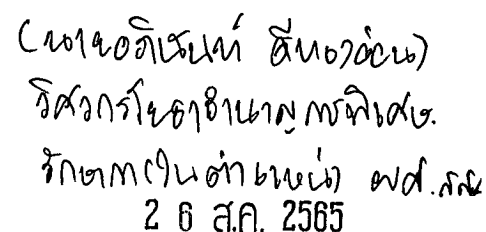 (นายอภินันท์ สีทองอ่อน)
วิศวกรโยธาชำนาญการพิเศษ
รักษาการในตำแหน่ง ผศ.
2 6 ส.ค. 2565